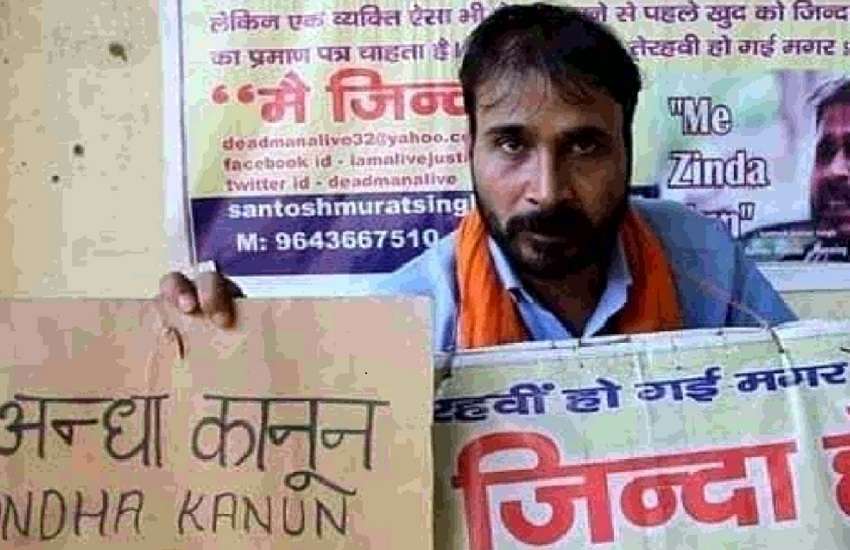 लेकिन एक व्यक्ति ऐसा भी से पहले खुद को जिन्द
का प्रमाण पत्र चाहता है। तेरहवी हो गई मगर
“मै जिन्द
deadmanalive32@yahoo.co
facebook id - iamalivejusti
twitter id - deadmanalive
santoshmuratsingh
M: 9643667510
"Me
Zinda
अन्धा कानून
NDHA KANUN
रहवीं हो गई मगर
जिन्दा